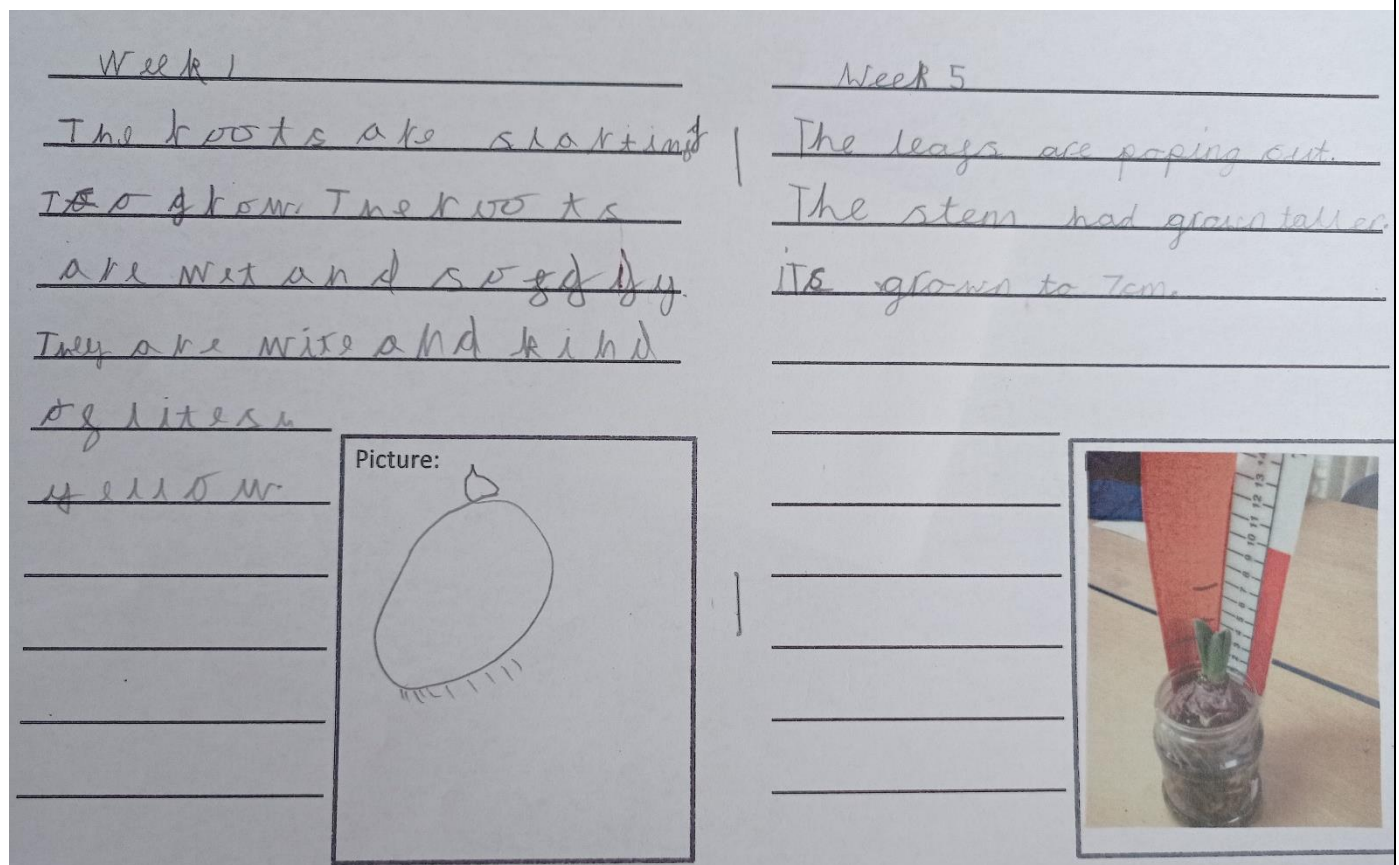 Week 1
The roots are starting
To grow. The roots
are wet and soggy.
They are wite and kind
of litesu
yellow.
Picture:
Week 5
The leafs are poping out.
The stem had grown taller.
iTs grown to 7cm.